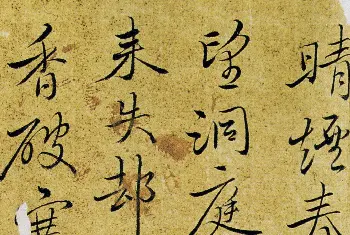 晴煙春
望洞庭
来失却
香破寒